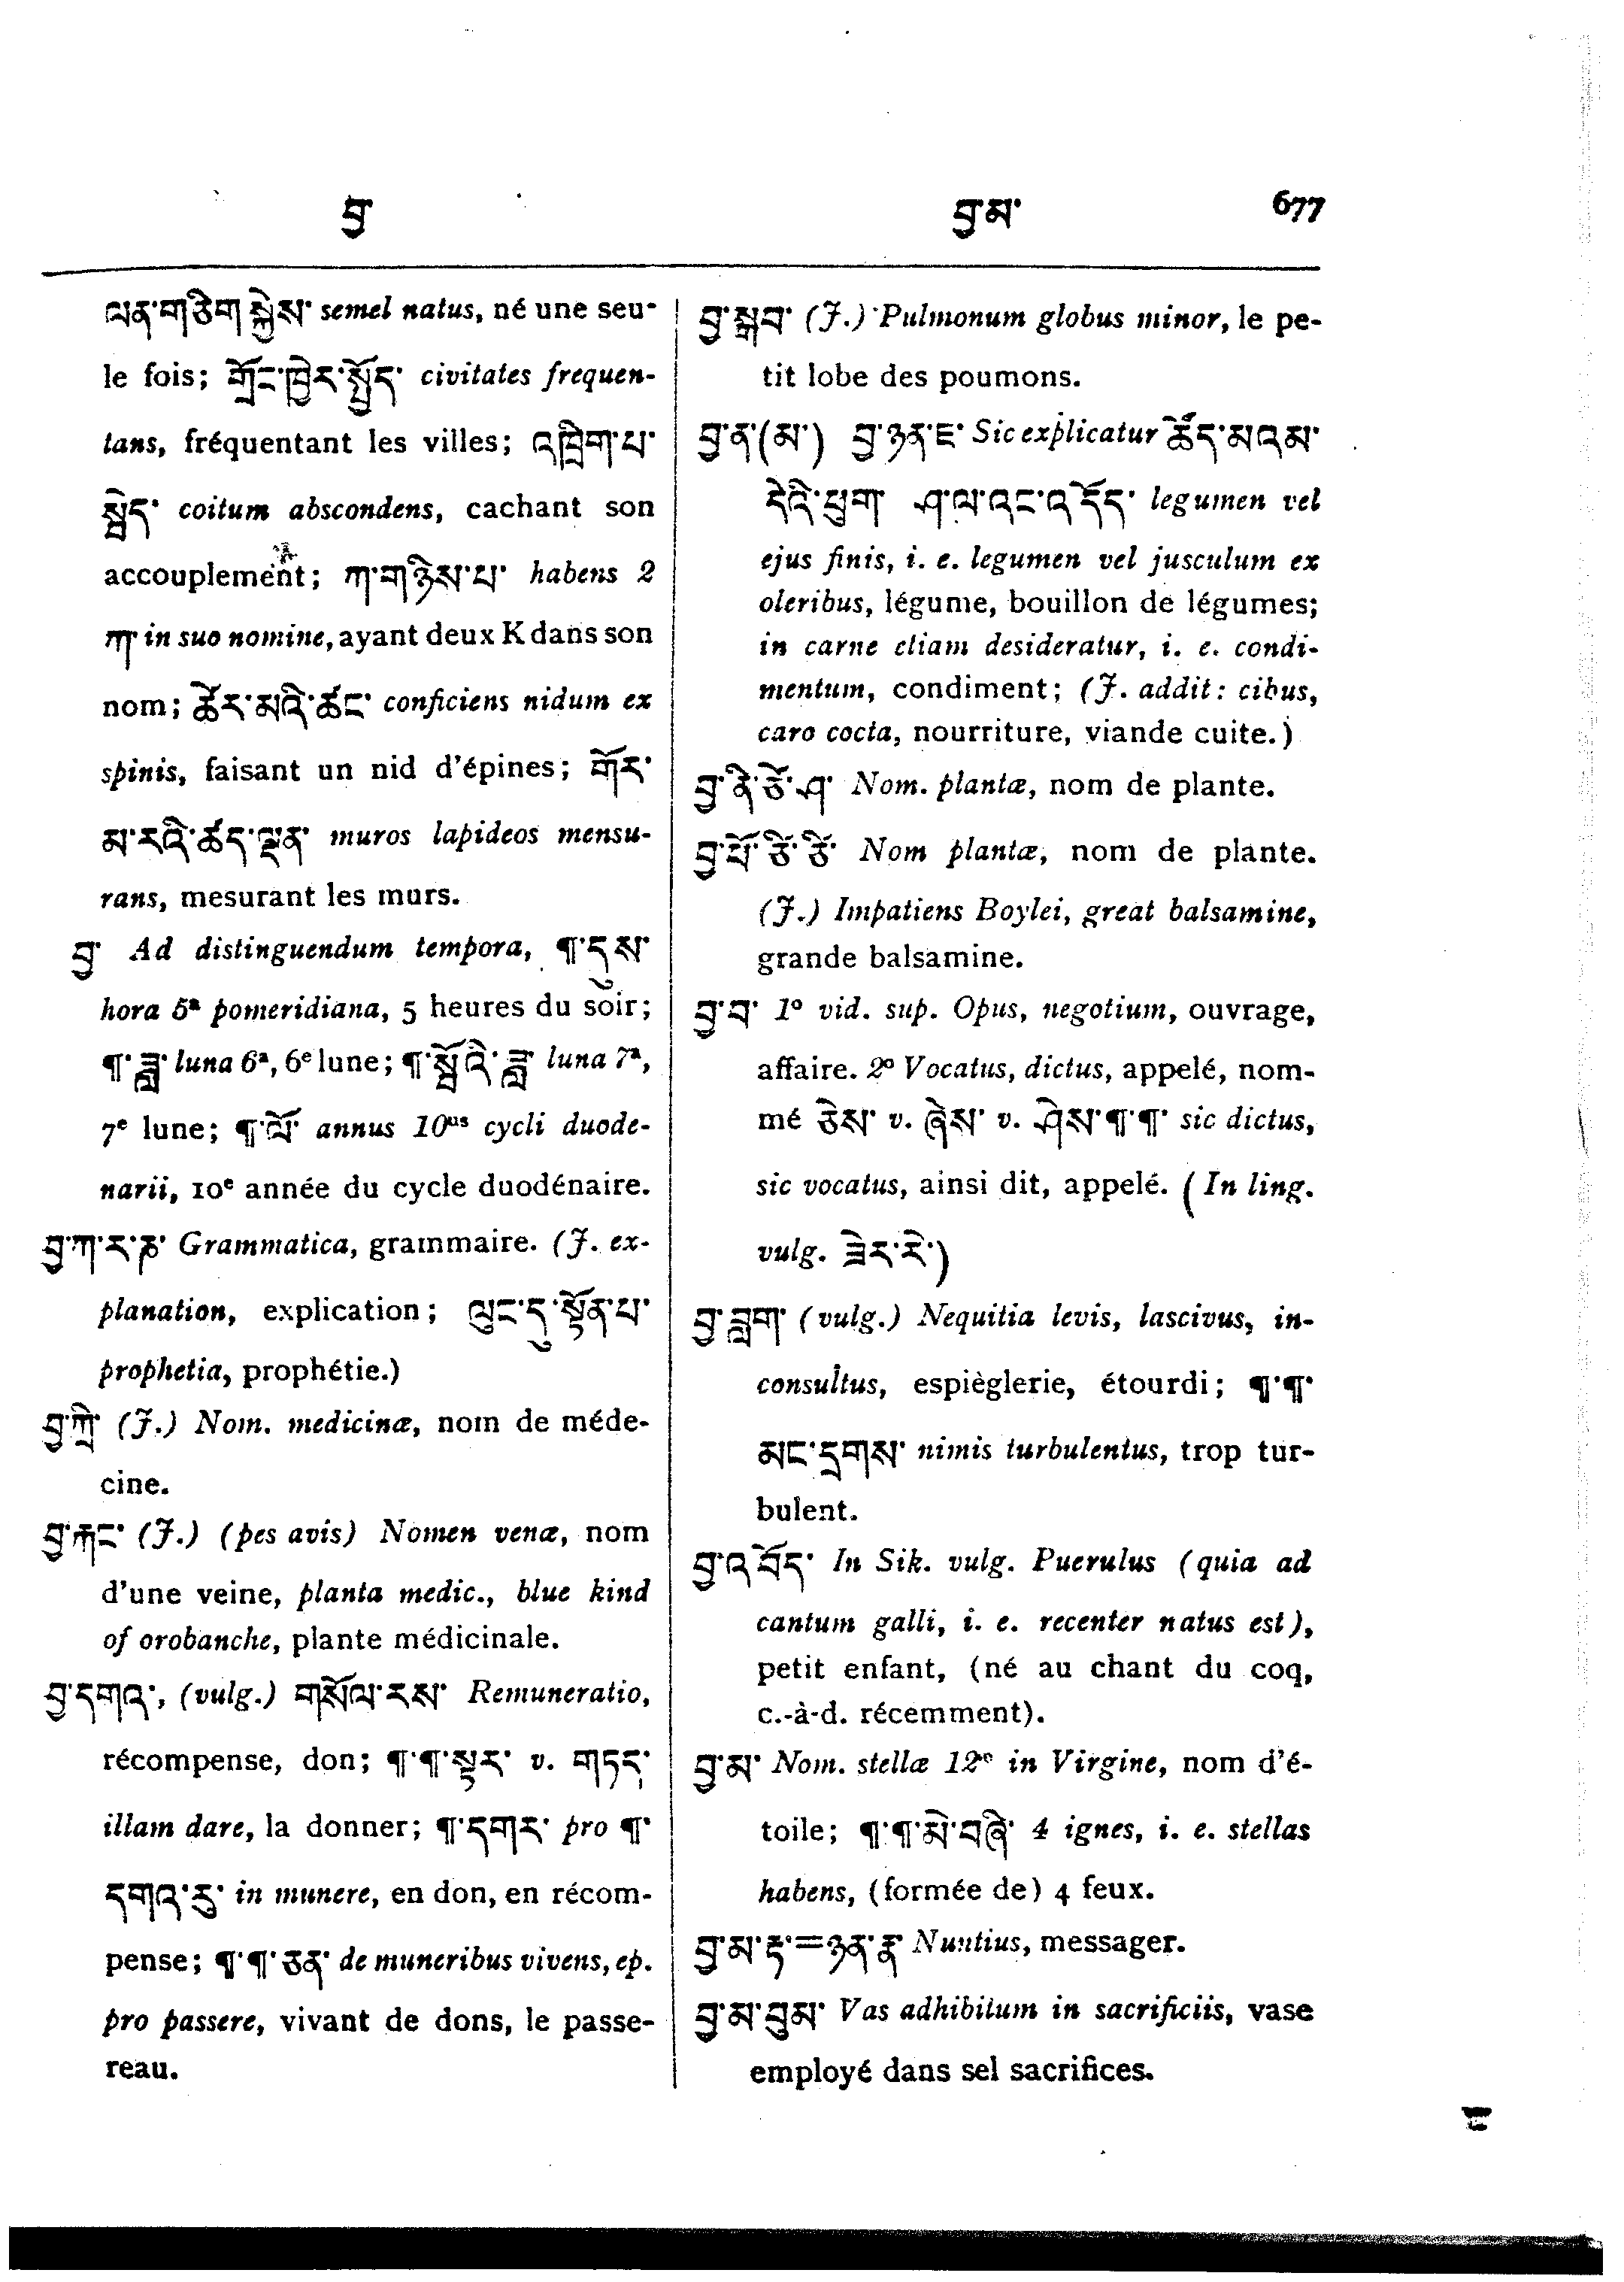 བྱ་
བྱ་མ་ 677
ལན་གཅིག་སྐྱེས་ semel natus, né une seu-
le fois; གྲོང་ཁྱེར་སྤྱོད་ civitates frequen-
tans, fréquentant les villes; འཁྲིག་པ་
སྦེད་ coitum abscondens, cachant son
accouplement; ཀ་གཉིས་པ་ habens 2
ཀ་ in suo nomine, ayant deux K dans son
nom; ཚེར་མའི་ཚང་ conficiens nidum ex
spinis, faisant un nid d'épines; གོར་
མ་རའི་ཚད་ལྡན་ muros lapideos mensu-
rans, mesurant les murs.
བྱ་ Ad distinguendum tempora, ¶་དུས་
hora 5ª pomeridiana, 5 heures du soir;
¶་ཟླ་ luna 6ª, 6e lune; ¶་སྤྲེའི་ཟླ་ luna 7ª,
7e lune; ¶་ལོ་ annus 10us cycli duode-
narii, 10e année du cycle duodénaire.
བྱ་ཀ་ར་ཎ་ Grammatica, grammaire. (J. ex-
planation, explication; ལུང་དུ་སྟོན་པ་
prophetia, prophétie.)
བྱ་ཀྲི་ (J.) Nom. medicinæ, nom de méde-
cine.
བྱ་རྐང་ (J.) (pes avis) Nomen venæ, nom
d'une veine, planta medic., blue kind
of orobanche, plante médicinale.
བྱ་དགའ་, (vulg.) གསོལ་རས་ Remuneratio,
récompense, don; ¶་¶་སྟར་ v. གཏད་
illam dare, la donner; ¶་དགར་ pro ¶་
དགའ་རུ་ in munere, en don, en récom-
pense; ¶་¶་ཅན་ de muneribus vivens, ep.
pro passere, vivant de dons, le passe-
reau.
བྱ་སྒྲབ་ (J.) Pulmonum globus minor, le pe-
tit lobe des poumons.
བྱ་ན་(མ་) བྱ་ཉན་ཛ་ Sic explicatur ཚོད་མའམ་
དེའི་ཕུག་ ཤ་ལ་འང་འདོད་ legumen vel
ejus finis, i. e. legumen vel jusculum ex
oleribus, légume, bouillon de légumes;
in carne etiam desideratur, i. e. condi-
mentum, condiment; (J. addit: cibus,
caro cocta, nourriture, viande cuite.)
བྱ་ནི་ཙོ་ཤ་ Nom. plantæ, nom de plante.
བྱ་པོ་ཙི་ཙི་ Nom plantæ, nom de plante.
(J.) Impatiens Boylei, great balsamine,
grande balsamine.
བྱ་བ་ 1º vid. sup. Opus, negotium, ouvrage,
affaire. 2º Vocatus, dictus, appelé, nom-
mé ཅེས་ v. ཞེས་ v. ཤེས་¶་¶་ sic dictus,
sic vocatus, ainsi dit, appelé. (In ling.
vulg. ཟེར་རེ་)
བྱ་བླག་ (vulg.) Nequitia levis, lascivus, in-
consultus, espièglerie, étourdi; ¶་¶་
མང་དྲགས་ nimis turbulentus, trop tur-
bulent.
བྱ་འབོད་ In Sik. vulg. Puerulus (quia ad
cantum galli, i. e. recenter natus est),
petit enfant, (né au chant du coq,
c.-à-d. récemment).
བྱ་མ་ Nom. stellæ 12e in Virgine, nom d'é-
toile; ¶་¶་མེ་བཞི་ 4 ignes, i. e. stellas
habens, (formée de) 4 feux.
བྱ་མ་རྟ་=ཉན་རྣ་ Nuntius, messager.
བྱ་མ་བུམ་ Vas adhibitum in sacrificiis, vase
employé dans sel sacrifices.